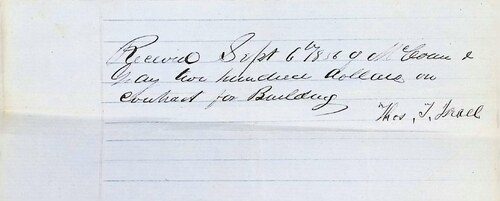 Recievd Sept 6th 1869 of McCoun &
Gray two hundred dollars on
contract for Building
Thos, T, Israel